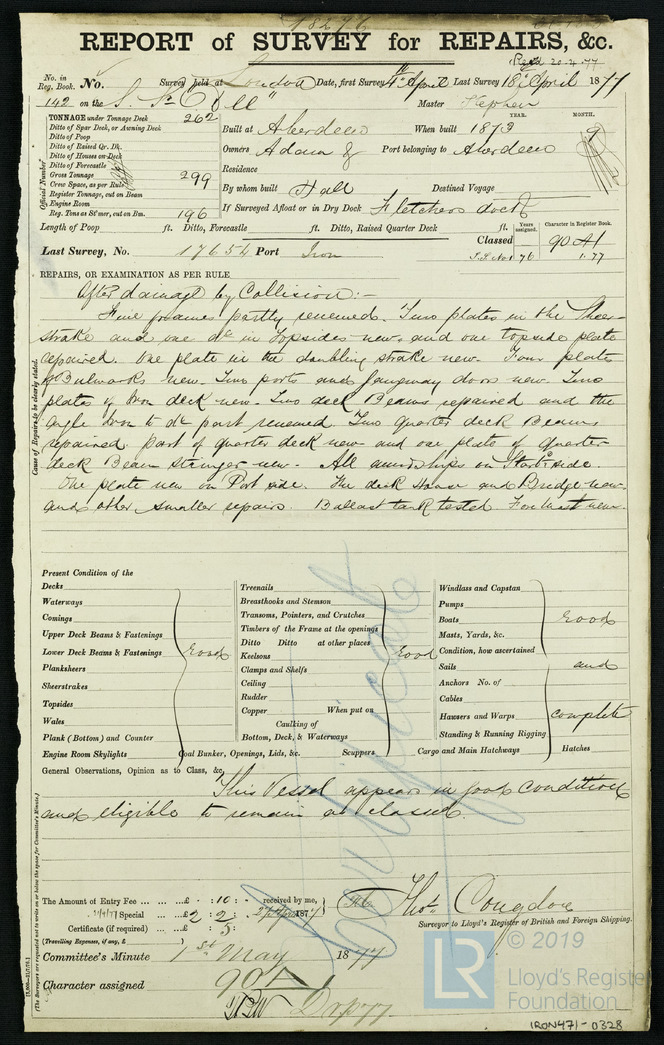 18276
REPORT of SURVEY for REPAIRS, &c.
Recd 20.4.77
No. in Reg. Book. No. Survey held at London Date, first Survey 4th April Last Survey 18th April 1877
142 on the S. Sr "Odll" Master Stephen
TONNAGE under Tonnage Deck 262
Ditto of Spar Deck, or Awning Deck
Ditto of Poop
Ditto of Raised Qr. Dk.
Ditto of Houses on Deck
Ditto of Forecastle
Gross Tonnage 299
Crew Space, as per Rule
Register Tonnage, cut on Beam
Engine Room
Reg. Tons as St'mer, cut on Bm. 196
Official Number
Built at Aberdeen When built 1873 YEAR. MONTH. 9
Owners Adam & Port belonging to Aberdeen
Residence
By whom built Hall Destined Voyage
If Surveyed Afloat or in Dry Dock Fletchers dock
Length of Poop ft. Ditto, Forecastle ft. Ditto, Raised Quarter Deck ft.
Classed Years assigned. Character in Register Book. 90 A1
1.77
Last Survey, No. 17654 Port Iron
REPAIRS, OR EXAMINATION AS PER RULE
After damage by Collision:-
Five frames partly renewed. Two plates in the Sheer-
strake and one do in topsides new, and one topside plate
repaired. One plate in the doubling strake new. Four plates
of Bulwarks new. Two ports and gangway doors new. Two
plates of Iron deck new. Two deck Beams repaired and the
angle Iron to do part renewed. Two quarter deck Beams
repaired part of quarter deck new and one plate of quarter
deck Beam stringer new. All amidships on Starbd side.
One plate new on Port side. The deck House and Bridge new.
and other smaller repairs. Ballast tank tested. Foremast new.
Cause of Repairs to be clearly stated.
Present Condition of the
Decks
Waterways
Comings
Upper Deck Beams & Fastenings
Lower Deck Beams & Fastenings
Planksheers
Sheerstrakes
Topsides
Wales
Plank (Bottom) and Counter
Engine Room Skylights
Good
Treenails
Breasthooks and Stemson
Transoms, Pointers, and Crutches
Timbers of the Frame at the openings
Ditto Ditto at other places
Keelsons
Clamps and Shelfs
Ceiling
Rudder
Copper When put on
Caulking of
Bottom, Deck, & Waterways
Coal Bunker, Openings, Lids, &c. Scuppers
Good
Windlass and Capstan
Pumps
Boats
Masts, Yards, &c.
Condition, how ascertained
Sails
Anchors No. of
Cables
Hawsers and Warps
Standing & Running Rigging
Cargo and Main Hatchways Hatches
Good
and
complete
Certificate
General Observations, Opinion as to Class, &c.
This Vessel appears in good condition
and eligible to remain as classed.
The Amount of Entry Fee £ : 10 : received by me,
Special £ 2 : 2 : 187
Certificate (if required) £ : 5 :
(Travelling Expenses, if any, £ )
Thos. Congdon
Surveyor to Lloyd's Register of British and Foreign Shipping.
Committee's Minute 1st May 1877
Character assigned 90 A1
(The Surveyors are requested not to write on or below the space for Committee's Minute.)
© 2019
LR Lloyd's Register
Foundation
IRON471-0328